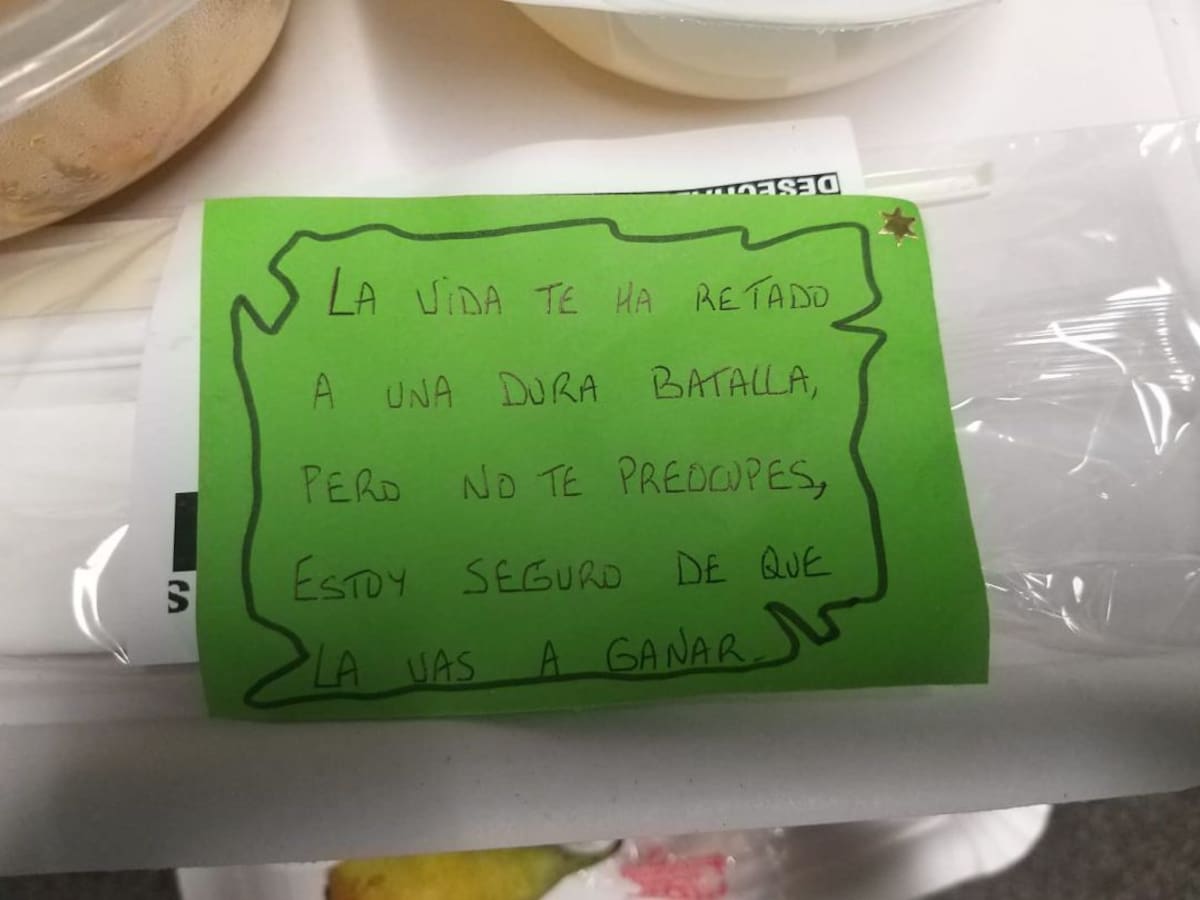 LA VIDA TE HA RETADO
A UNA DURA BATALLA,
PERO NO TE PREOCUPES,
ESTOY SEGURO DE QUE
LA VAS A GANAR.